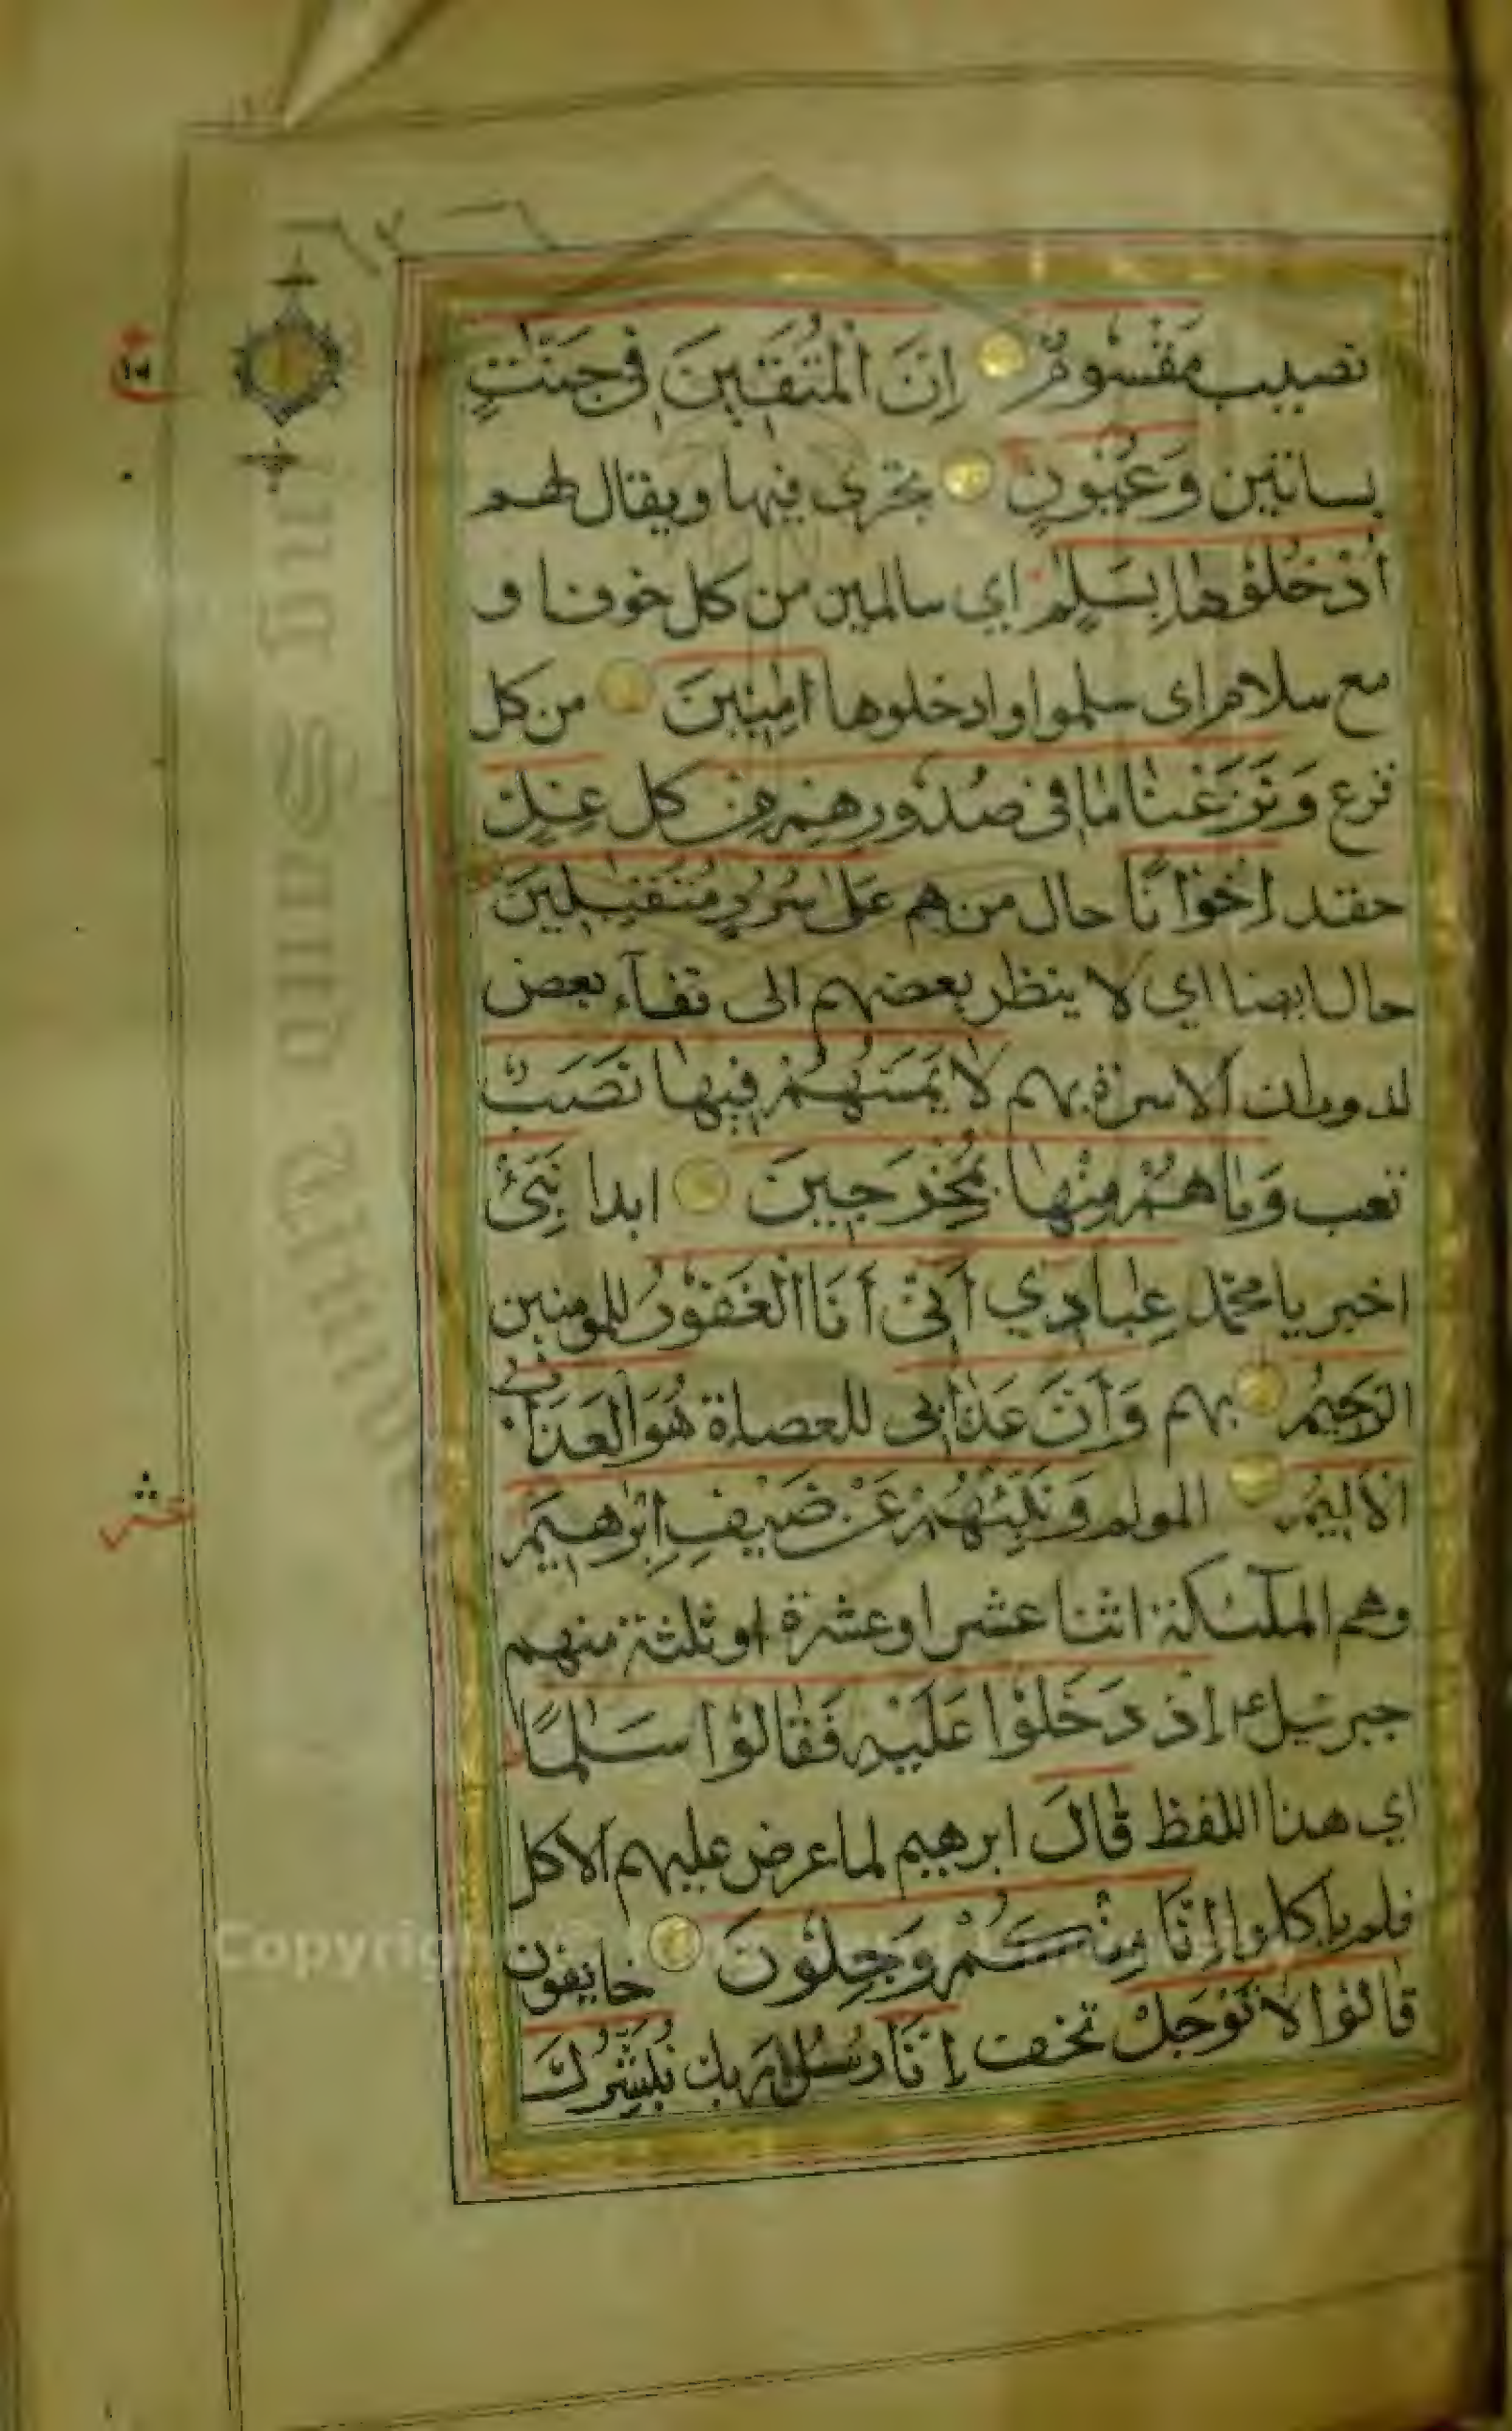 نصيب مَقْسُومٌ اِنَّ الْمُتَّقِينَ فِي جَنّٰتٍ
بساتين وَعُيُونٍ تجرى فيها ويقال لهم
اُدْخُلُوْهَا بِسَلٰمٍ اي سالمين من كل خوف او
مع سلام اى سلموا وادخلوها اٰمِنِينَ من كل
فزع وَنَزَعْنَا مَا فِى صُدُورِهِمْ مِنْ كل غِلٍّ
حقد اِخْوَانًا حال من هم عَلٰى سُرُرٍ مُتَقٰبِلِينَ
حال ايضا اي لا ينظر بعضهم الى قفآء بعض
لدوران الاسرة بهم لَا يَمَسُّهُمْ فِيهَا نَصَبٌ
تعب وَمَا هُمْ مِنْهَا بِمُخْرَجِينَ ابدا نَبِّئْ
اخبر يا محمد عِبَادِي اَنِّىْ اَنَا الْغَفُوْرُ للمومنين
الرَّحِيْمُ بهم وَاَنَّ عَذَابِى للعصاة هُوَ الْعَذَابُ
الْاَلِيْمُ المولم وَنَبِّئْهُمْ عَنْ ضَيْفِ اِبْرٰهِيْمَ
وهم الملٓئكة اثنا عشر او عشرة او ثلثة منهم
جبرئيل اِذْ دَخَلُوْا عَلَيْهِ فَقَالُوْا سَلٰمًا
اي هذا اللفظ قَالَ ابرهيم لما عرض عليهم الاكل
فلم ياكلوا اِنَّا مِنْكُمْ وَجِلُوْنَ خايفون
قَالُوْا لَا تَوْجَلْ تخف اِنَّا رسل ربك نُبَشِّرُكَ